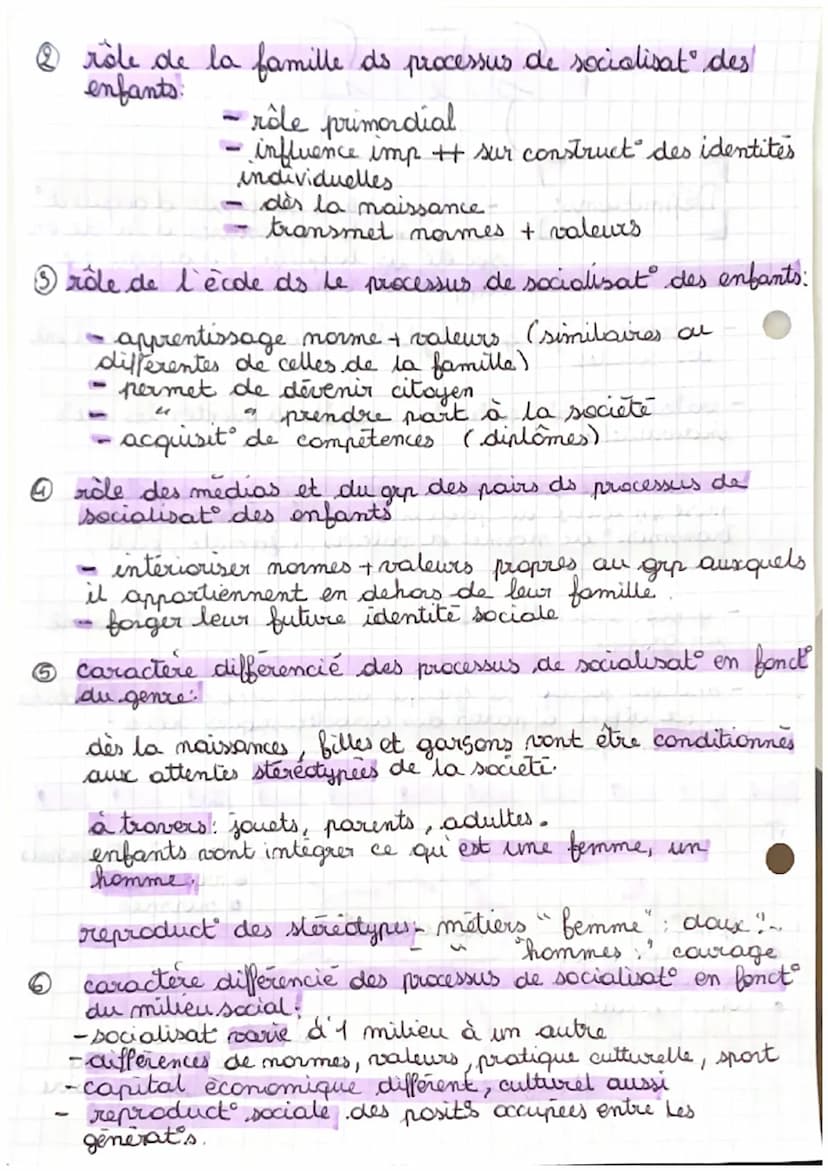 ② rôle de la famille ds processus de socialisat° des
enfants:
- rôle primordial
- influence imp ++ sur construct° des identités
individuelles
- dès la naissance
- transmet normes + valeurs
③ rôle de l'école ds le processus de socialisat° des enfants:
- apprentissage norme + valeurs (similaires ou
différentes de celles de la famille)
- permet de devenir citoyen
- " " prendre part à la société
- acquisit° de compétences (diplômes)
④ rôle des médias et du grp des pairs ds processus de
socialisat° des enfants
- intérioriser normes + valeurs propres au grp auxquels
il appartiennent en dehors de leur famille.
- forger leur future identité sociale
⑤ caractère différencié des processus de socialisat° en fonct°
du genre:
dès la naissances, filles et garçons vont être conditionnés
aux attentes stéréotypées de la société.
à travers: jouets, parents, adultes.
enfants vont intégrer ce qu'est une femme, un
homme.
reproduct° des stéréotypes - métiers "femme": doux
- " "hommes:" courage
⑥ caractère différencié des processus de socialisat° en fonct°
du milieu social:
- socialisat varie d'1 milieu à un autre
- différences de normes, valeurs, pratique culturelle, sport
- capital économique différent, culturel aussi
- reproduct° sociale des posit°s occupées entre les
générat°s.